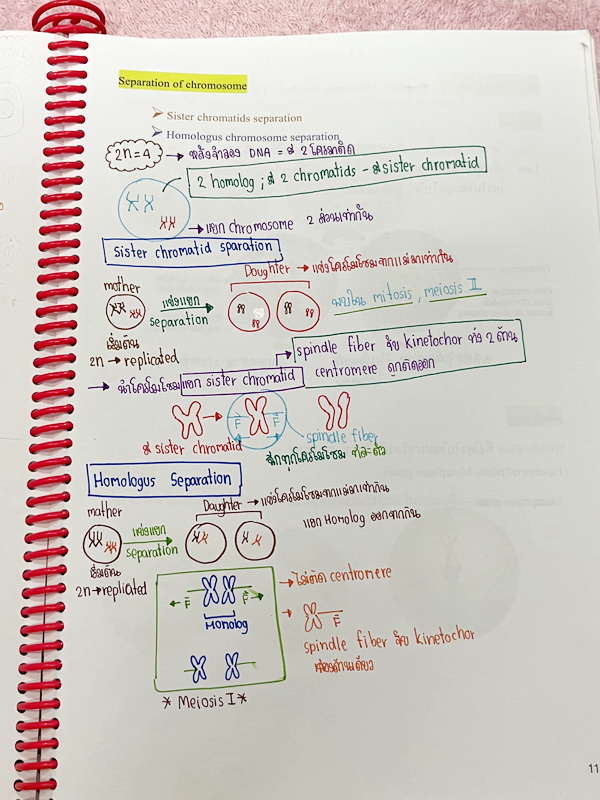 Separation of chromosome
➤ Sister chromatids separation
➤ Homologus chromosome separation
2n=4 → หลังจำลอง DNA = มี 2 โครมาติด
2 homolog ; มี 2 chromatids - มี sister chromatid
→ แยก chromosome 2 ส่วนเท่ากัน
Sister chromatid sparation
Daughter → แบ่งโครโมโซมจากแม่มาเท่ากัน
mother
แบ่งแยก
separation
พบใน mitosis , meiosis II
เริ่มต้น
2n → replicated
spindle fiber จับ kinetochor ทั้ง 2 ด้าน
centromere ถูกตัดออก
→ นำโครโมโซมแยก sister chromatid
F F
มี sister chromatid
spindle fiber
Homologus Separation
mother
Daughter → แบ่งโครโมโซมจากแม่มาเท่ากัน
แบ่งแยก
separation
แยก Homolog ออกจากกัน
เริ่มต้น
2n → repliated
F F
Homolog
→ ไม่ตัด centromere
F
spindle fiber จับ kinetochor
ด้านเดียว
* Meiosis I *
11